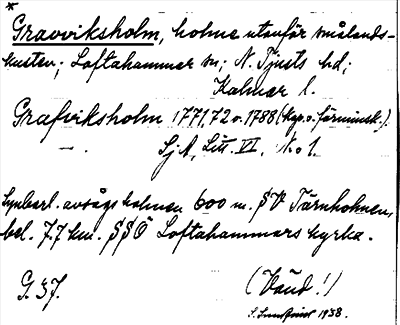 *
Gravviksholm, holme utanför smålands-
kusten; Loftahammar sn; N. Tjusts hd;
Kalmar l.
Grafviksholm 1771, 72 o. 1788 (kop. o. förminsk.).
— . SjA, Litt. VI, N:o 1.
Synbarl. avsågs holmen 600 m. SV Tärnholmen,
bel. 7.7 km. SSÖ Loftahammars kyrka.
G. 37. (Vänd!)
1938.